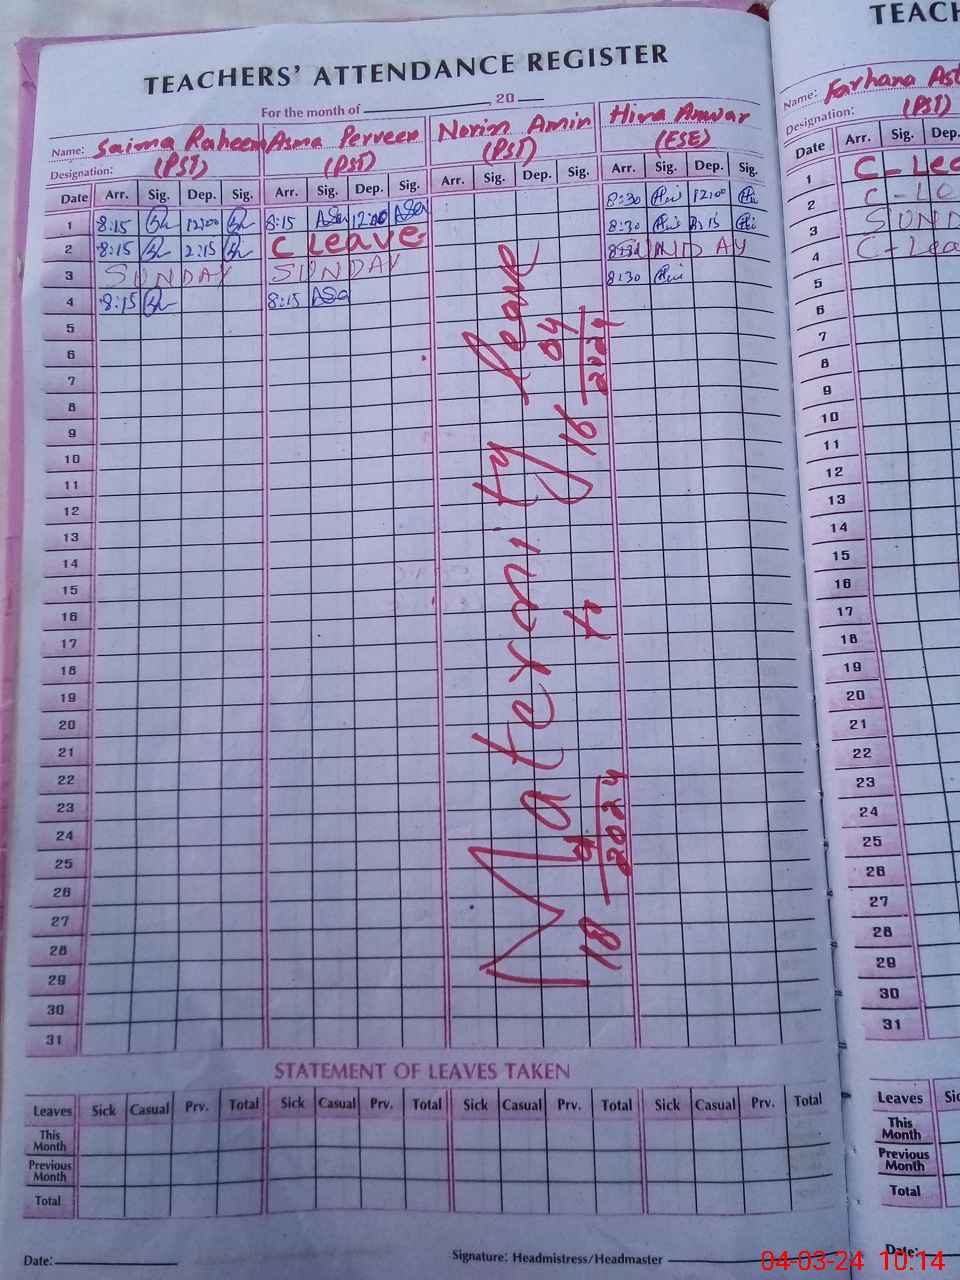 TEACHERS' ATTENDANCE REGISTER
For the month of , 20
Name: Saima Raheem Asma Perveen Norin Amin Hira Anwar
Designation: (PST) (PST) (PST) (ESE)
Date Arr. Sig. Dep. Sig. Arr. Sig. Dep. Sig. Arr. Sig. Dep. Sig. Arr. Sig. Dep. Sig.
1 8:15 12:00 8:15 12:00 8:30 12:00
2 8:15 2:15 C Leave 8:30 2:15
3 SUNDAY SUNDAY SUNDAY
4 8:15 8:15 8:30
5
6
7
8
9
10
11
12
13
14
15
16
17
18
19
20
21
22
23
24
25
26
27
28
29
30
31
Maternity leave
18 2024 to 16 04 2024
STATEMENT OF LEAVES TAKEN
Leaves Sick Casual Prv. Total Sick Casual Prv. Total Sick Casual Prv. Total Sick Casual Prv. Total
This Month
Previous Month
Total
Date:
Signature: Headmistress/Headmaster
TEACH
Name: Farhana
Designation: (PST)
Date Arr. Sig. Dep.
1 C-Lea
2 C-Le
3 SUND
4 C-Lea
5
6
7
8
9
10
11
12
13
14
15
16
17
18
19
20
21
22
23
24
25
26
27
28
29
30
31
Leaves
This Month
Previous Month
Total
Date:
04-03-24 10:14